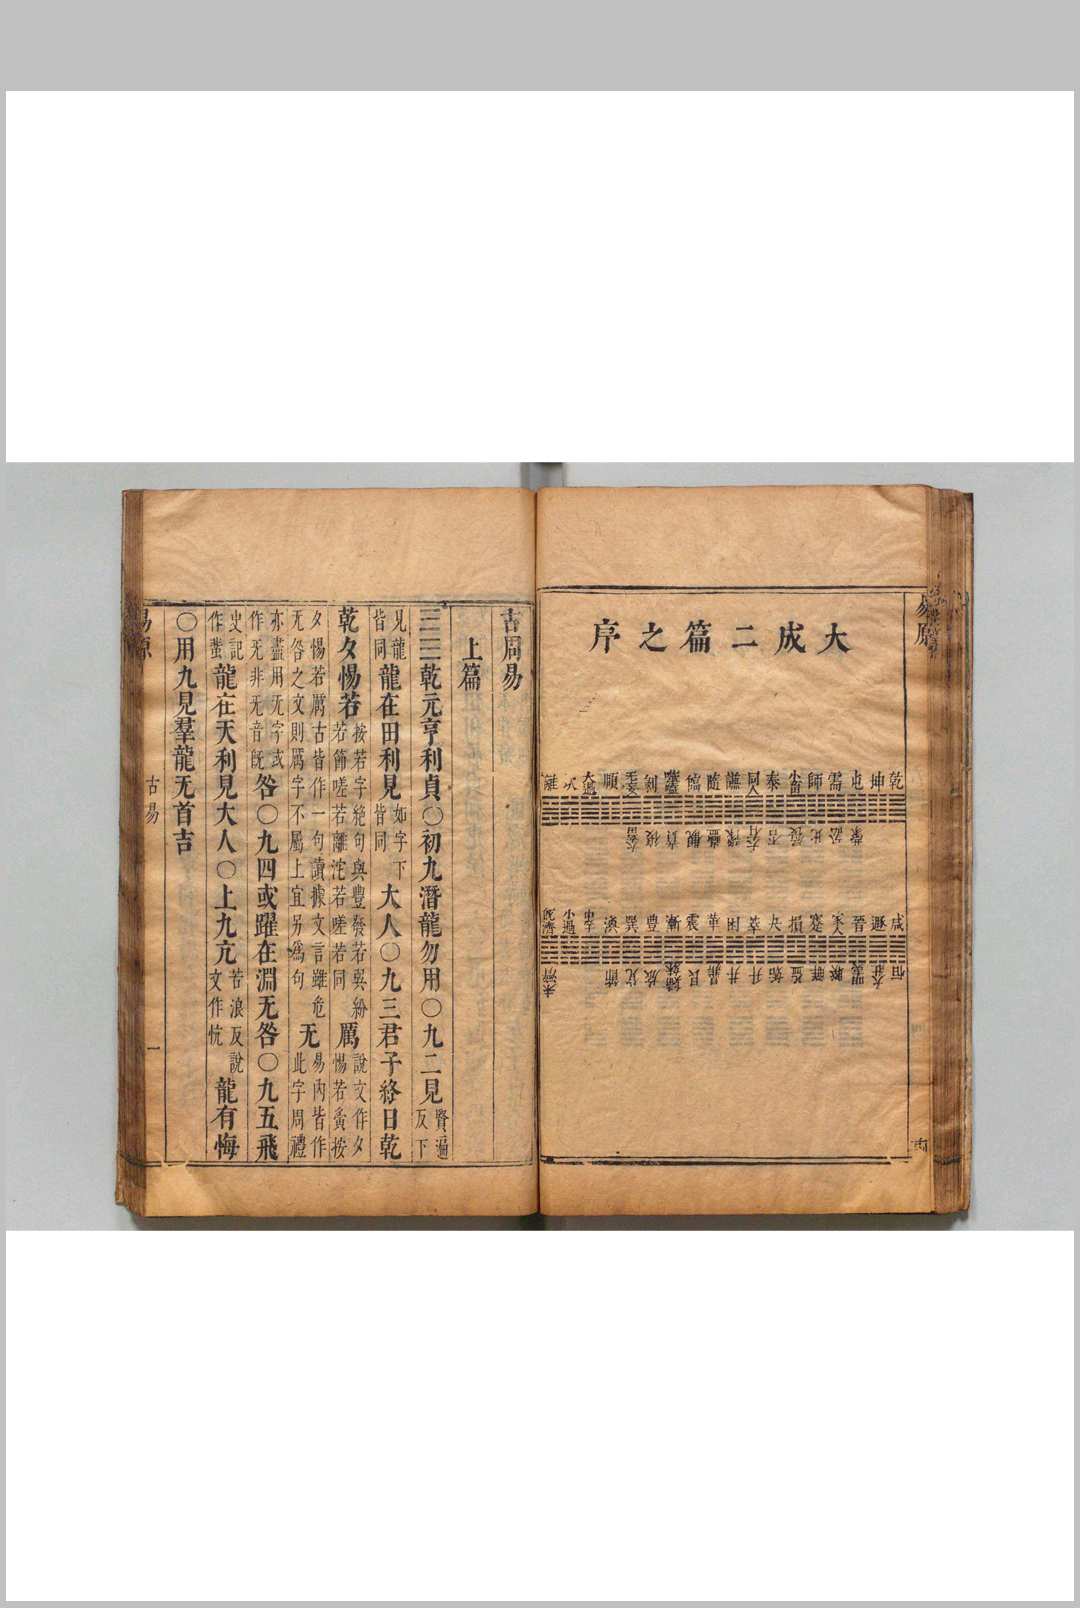 大成二篇之序
乾 坤 屯 需 師 小畜 泰 同人 謙 隨 臨 噬嗑 剝 无妄 頤 大過 坎 離
蒙 訟 比 履 否 大有 豫 蠱 觀 賁 復 大畜
咸 遯 晉 家人 蹇 損 夬 萃 困 革 震 漸 豐 巽 渙 中孚 小過 既濟
恒 大壯 明夷 睽 解 益 姤 升 井 鼎 艮 歸妹 旅 兌 節 未濟
古周易
上篇
乾元亨利貞○初九潛龍勿用○九二見賢遍反下
見龍皆同龍在田利見如字下皆同大人○九三君子終日乾
乾夕惕若按若字絶句與豐發若巽紛若節嗟若離沱若嗟若同厲說文作夕惕若夤按
夕惕若厲古皆作一句讀據文言雖危无咎之文則厲字不屬上宜另爲句无易內皆作此字周禮
亦盡用无字或作旡非旡音旣咎○九四或躍在淵无咎○九五飛
史記作蜚龍在天利見大人○上九亢苦浪反說文作忼龍有悔
○用九見羣龍无首吉
易原
古易
一